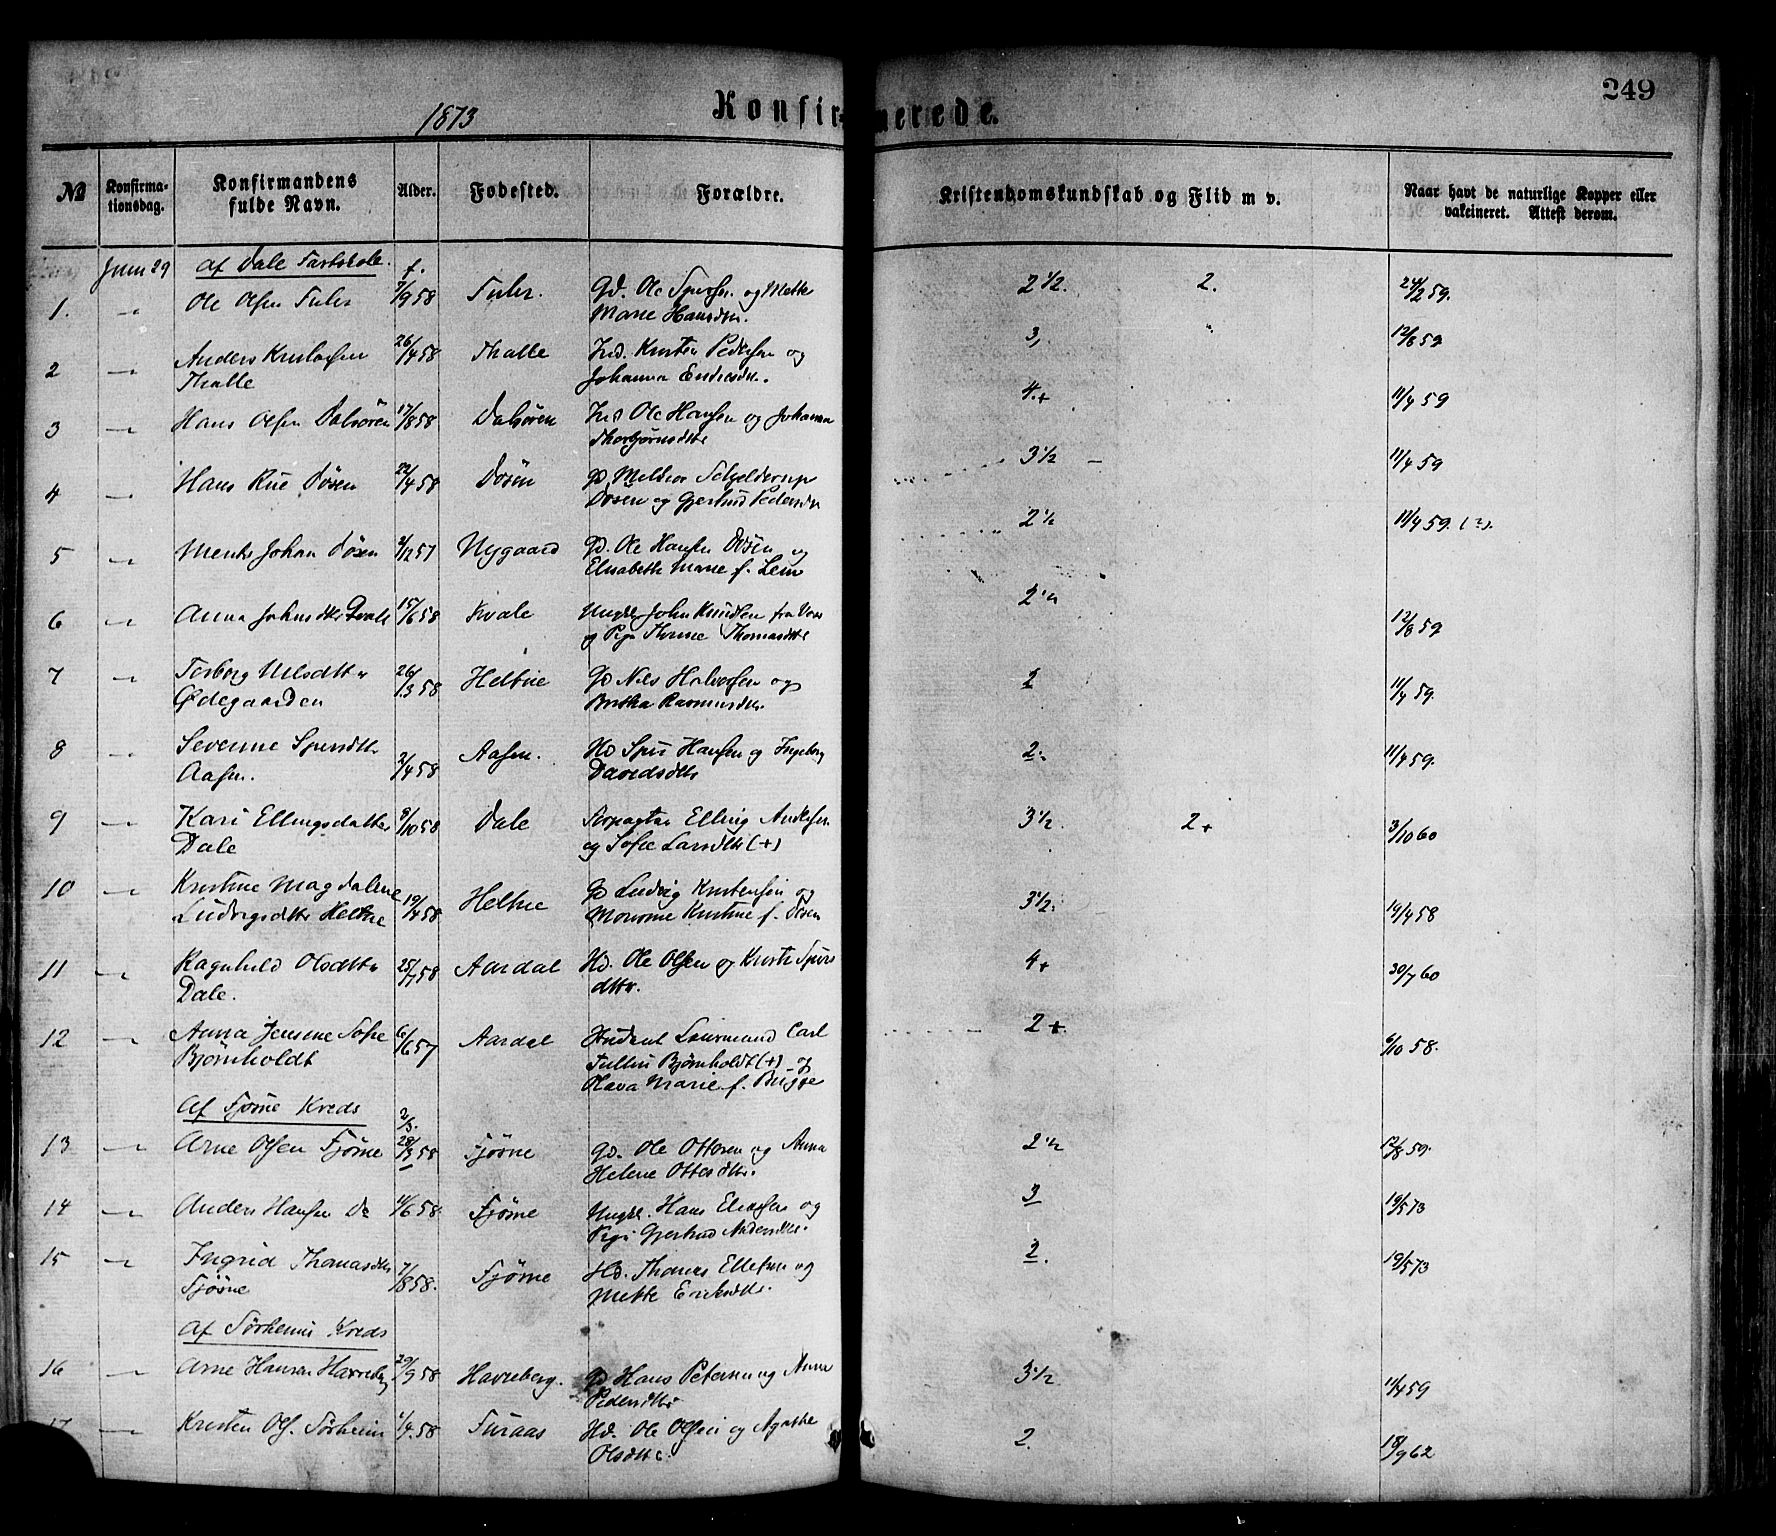 249
1873
Konfirmerede.
№ Konfirmationsdag. Konfirmandens fulde Navn. Alder. Fødested. Forældre. Kristendomskundskab og Flid m v. Naar havt de naturlige Kopper eller vakcineret. Attest derom.
Juni 29 Af Dale Fastskole. f.
1. Ole Olsen 7/9 58 Gd. Ole og Mette 2 1/2. 2. 24/2 59.
Marie Hansdtr.
2 Anders 26/4 58 Thalle Ind. Kristen Pedersen og 3, " 12/8 59
Thalle Johanna Endresdtr.
3 Hans Olsen Dalsøren 17/8 58 Dalsøren Ind Ole Hansen og Johanna 4.+ 11/4 59
Thorbjørnsdtr
4 Hans Rue Døsen 22/4 58 Døsen Gd. Meltior Schjelderup 3 1/2 11/4 59
Døsen og Gjertrud Pedersdtr
5 Ments Johan Døsen 2/12 57 Nygaard Gd. Ole Hansen Døsen og 2 1/2 11/4 59. (?).
Elisabeth Marie f. Lem
6 Anna Johnsdtr Kvale 15/6 58 Kvale Ungkl John Knudsen fra Vos 2 1/2 12/8 59
og Pige Thomasdtr
7 Torborg Nilsdttr 26/3 58 Heltne Gd Nils Halvorsen og 2 11/4 59.
Ødegaarden Brithe Rasmusdtr.
8 Severine Spersdttr 2/4 58 Aasen. Hd Hansen og Ingeborg 2. 11/4 59.
Aasen. Davidsdtr
9 Kari Ellingsdatter 8/10 58 Dale Elling Andersen 3 1/2. 2+ 3/10 60
Dale og Sofie Larsdtr (+)
10 Kristine Magdalene 19/4 58 Heltne Gd Ludvig Kristensen og 3 1/2. 19/4 58
Ludvigsdtr Heltne Kristine f. Døsen
11 Ragnhild Olsdttr 25/7 58 Aardal Hd. Ole Olsen og 4+ 30/7 60
Dale. dttr.
12 Anna Jensine Sofie 6/6 57 Aardal Student Carl 2+ 6/10 58.
Bjørnholdt Bjørnholdt (+) og
Olava Marie f. Bugge
Af Fjøsne Kreds 2/3.
13 Arne Olsen Fjøsne 28/3 58 Fjøsne Gd. Ole Ottesen og Anna 2 1/2 12/8 59.
Helene Ottesdtr.
14 Anders Hansen Do 4/6 58. Fjøsne Ungkl. Hans og 3 19/5 73
Pige Gjertrud Andersdtr.
15 Ingrid Thomasdtr 7/8 58. Fjøsne Hd. Thomas Ellefsen og 2. 19/5 73
Fjøsne Mette Eriksdtr.
Af Sørheims Kreds
16 Arne Hansen Havreberg 29/9 58 Havreberg. Gd Hans Petersen og Anna 3 1/2 11/4 59
Pedersdtr
17 Kristen Ols. Sørheim 1/4 58 Furaas Hd. Ole Olsen og Agathe 2. 18/9 62
Olsdttr.